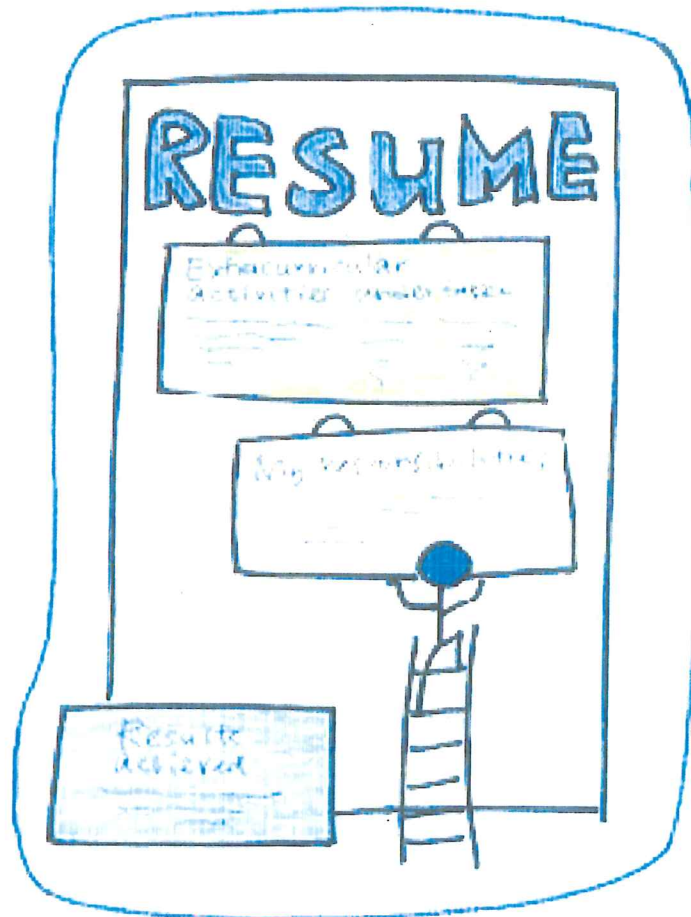 RESUME
Extracurricular
activities undertaken
My Responsibilities
Results
achieved